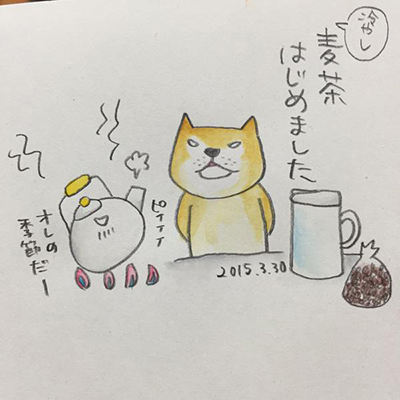 冷やし
麦茶
はじめました
ピィィィ
オレの
季節だー
2015.3.30